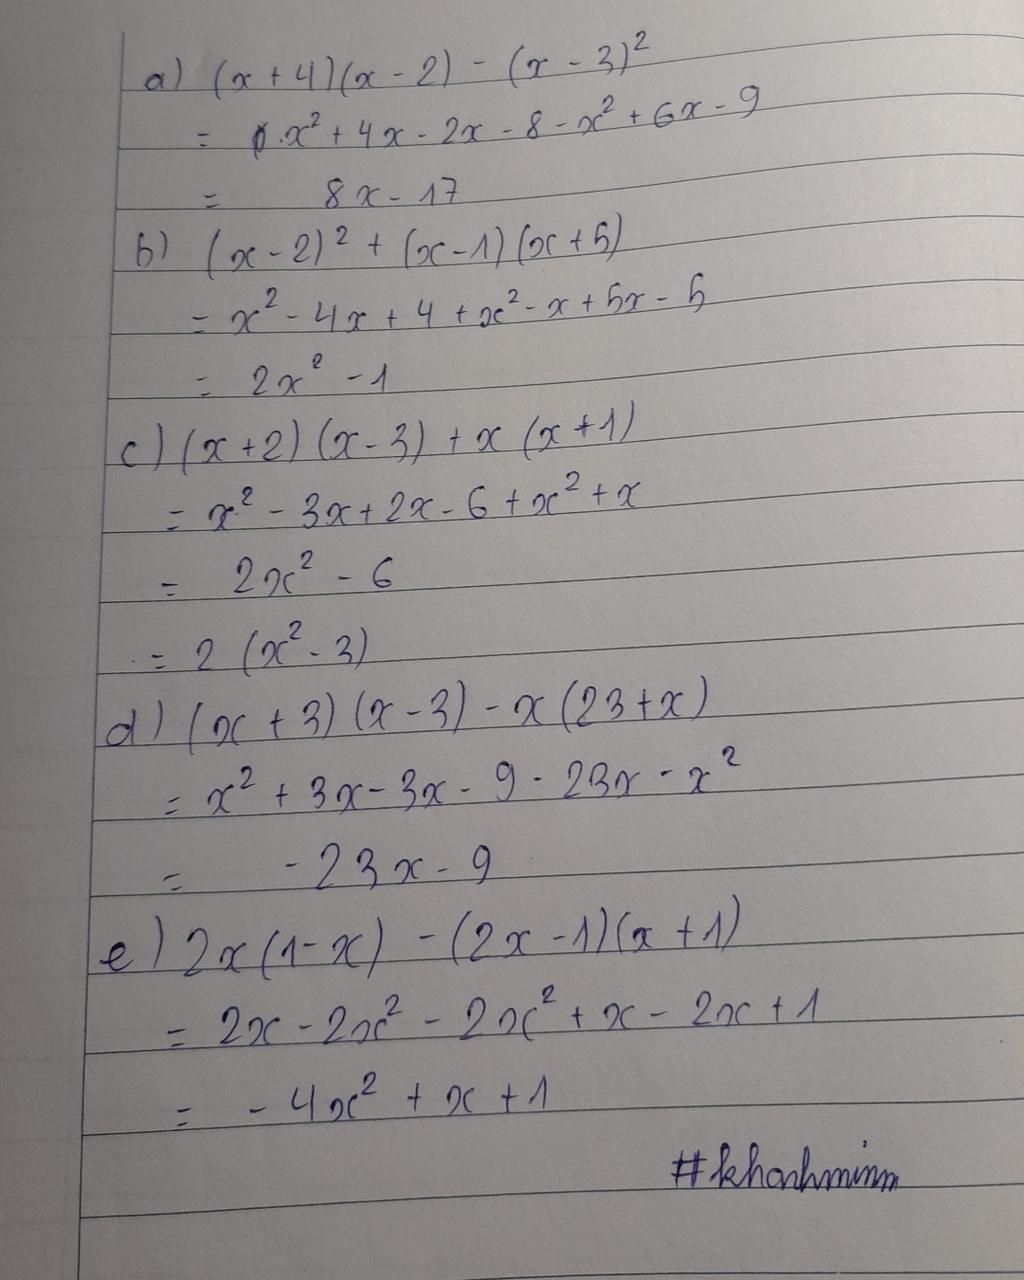 a) (x+4)(x-2) - (x-3)²
= x² + 4x - 2x - 8 - x² + 6x - 9
= 8x - 17
b) (x-2)² + (x-1)(x+5)
= x² - 4x + 4 + x² - x + 5x - 5
= 2x² - 1
c) (x+2)(x-3) + x(x+1)
= x² - 3x + 2x - 6 + x² + x
= 2x² - 6
= 2(x² - 3)
d) (x+3)(x-3) - x(23+x)
= x² + 3x - 3x - 9 - 23x - x²
= -23x - 9
e) 2x(1-x) - (2x-1)(x+1)
= 2x - 2x² - 2x² + x - 2x + 1
= -4x² + x + 1